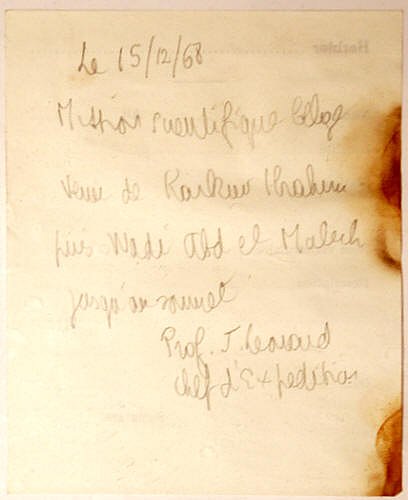 Le 15/12/68
Mission scientifique Belge
venue de Karkur Ibrahim
puis Wadi Abd el Malech
jusqu'au sommet
Prof. J. Leonard
Chef d'Expedition